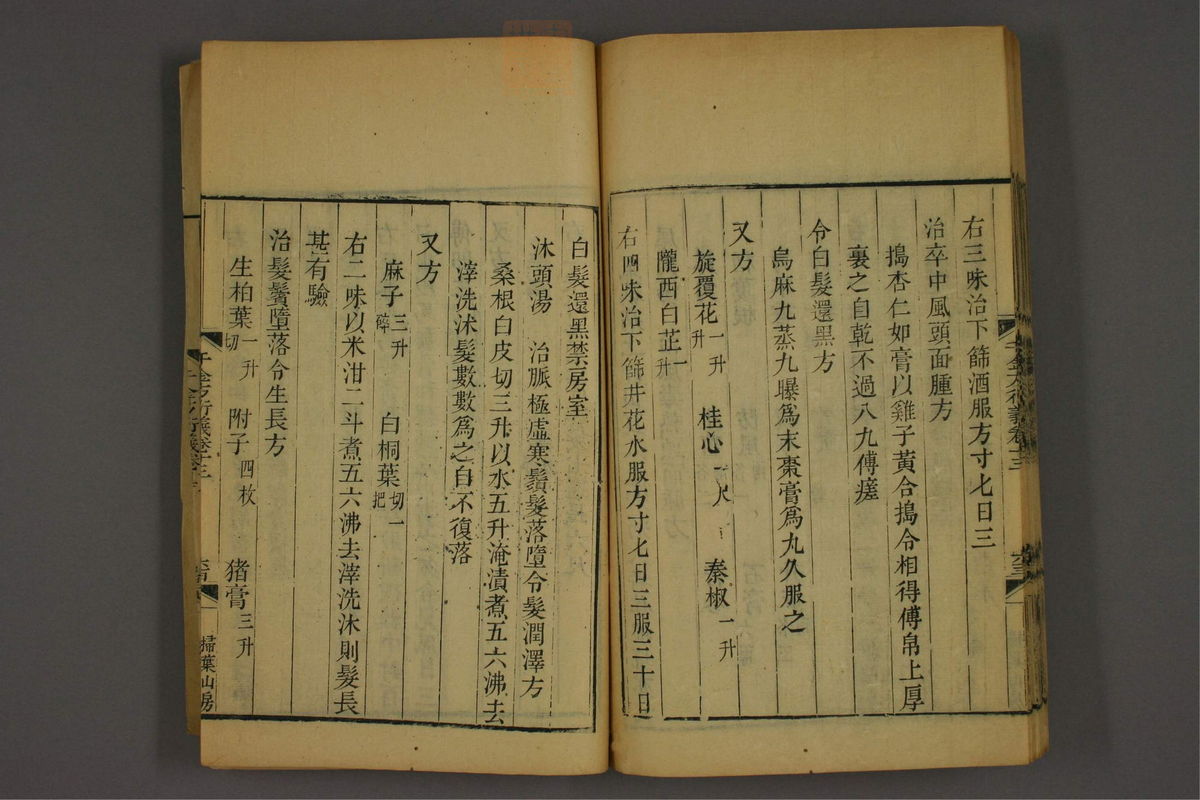 右三味治下篩酒服方寸匕日三
治卒中風頭面腫方
搗杏仁如膏以雞子黃合搗令相得傅帛上厚
裹之自乾不過八九傅瘥
令白髮還黑方
烏麻九蒸九曝爲末棗膏爲丸久服之
又方
旋覆花一升 桂心一尺 秦椒一升
隴西白芷一升
右四味治下篩井花水服方寸匕日三服三十日
白髮還黑禁房室
沐頭湯 治脈極虛寒鬚髮落墮令髮潤澤方
桑根白皮切三升以水五升淹漬煮五六沸去
滓洗沐髮數數爲之自不復落
又方
麻子三升碎 白桐葉切一把
右二味以米泔二斗煮五六沸去滓洗沐則髮長
甚有驗
治髮鬢墮落令生長方
生柏葉一升切 附子四枚 猪膏三升
千金方衍義卷十三
掃葉山房